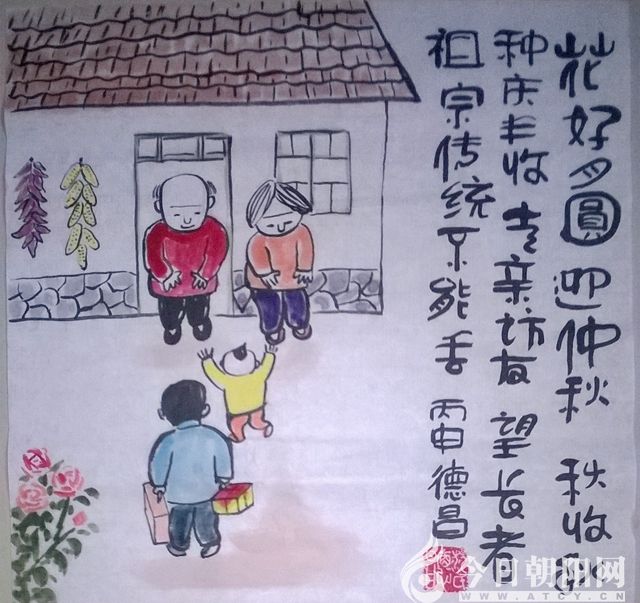 花好月圓 迎仲秋 秋收
种庆丰收 走亲坊友 望长者
祖宗传统不能丢 丙申 德昌
今日朝阳网
WWW.ATCY.CN